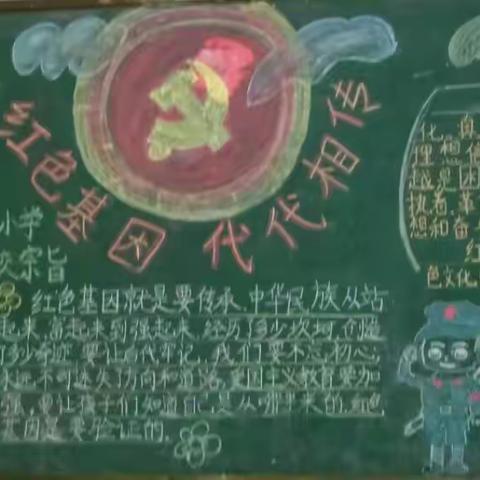 红色基因 代代相传
小学
宗旨
红色基因就是要传承.中华民族从站
起来,富起来到强起来,经历了多少坎坷,创造
了多少奇迹,要让后代牢记,我们要不忘初心,
永远不可迷失了方向和道路,爱国主义教育要加
强,要让孩子们知道自己是从哪里来的.红色
基因是要验证的.
化
理想信
越是困
执着,革
想和奋
红
色文化